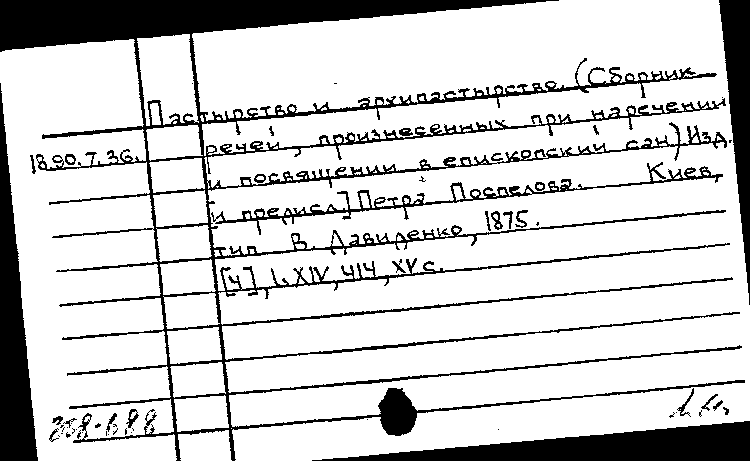 Пастырство и архипастырство. (Сборник
18.90.7.36. речей, произнесенных при наречении
и посвящении в епископский сан) Изд.
[и предисл.] Петра Поспелова. Киев,
тип В. Давиденко, 1875.
[4], LXIV, 414, XV с.
388-688